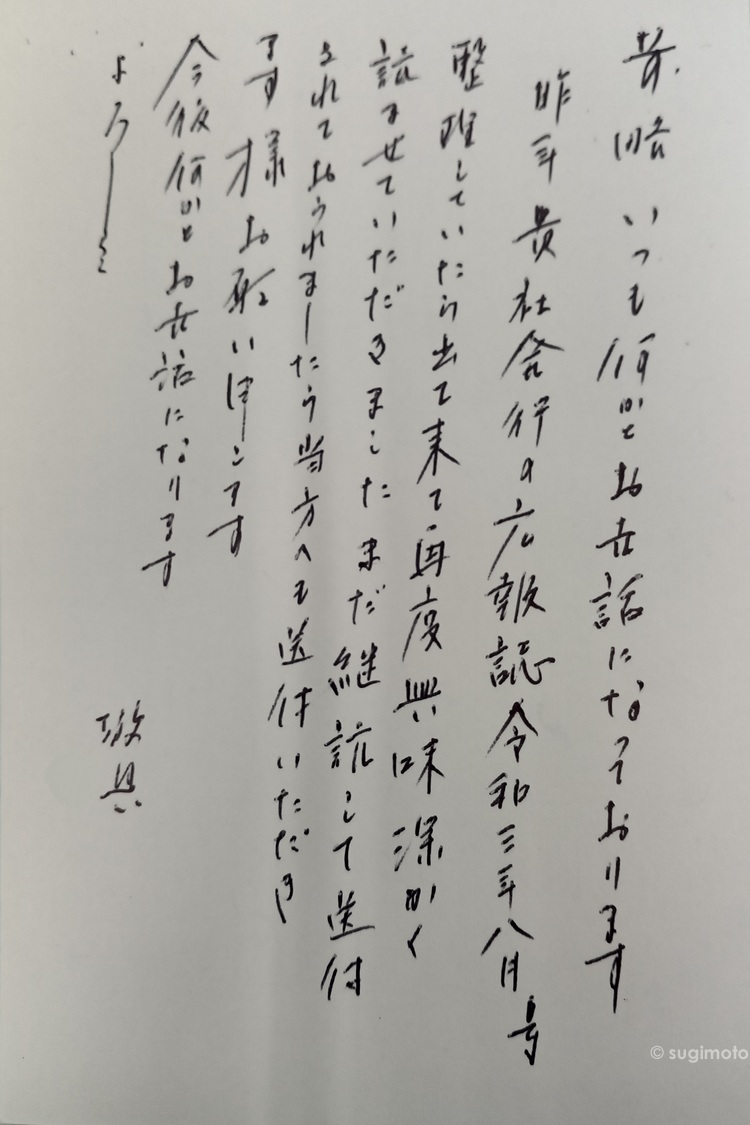 前略 いつも何かとお世話になっております
昨年貴社発行の広報誌令和三年八月号
整理していたら出て来て再度興味深かく
読ませていただきましたまだ継続して送付
されておられましたら当方へも送付いただき
ます様お願い申します
今後何かとお世話になります
よろしく
敬具
© sugimoto